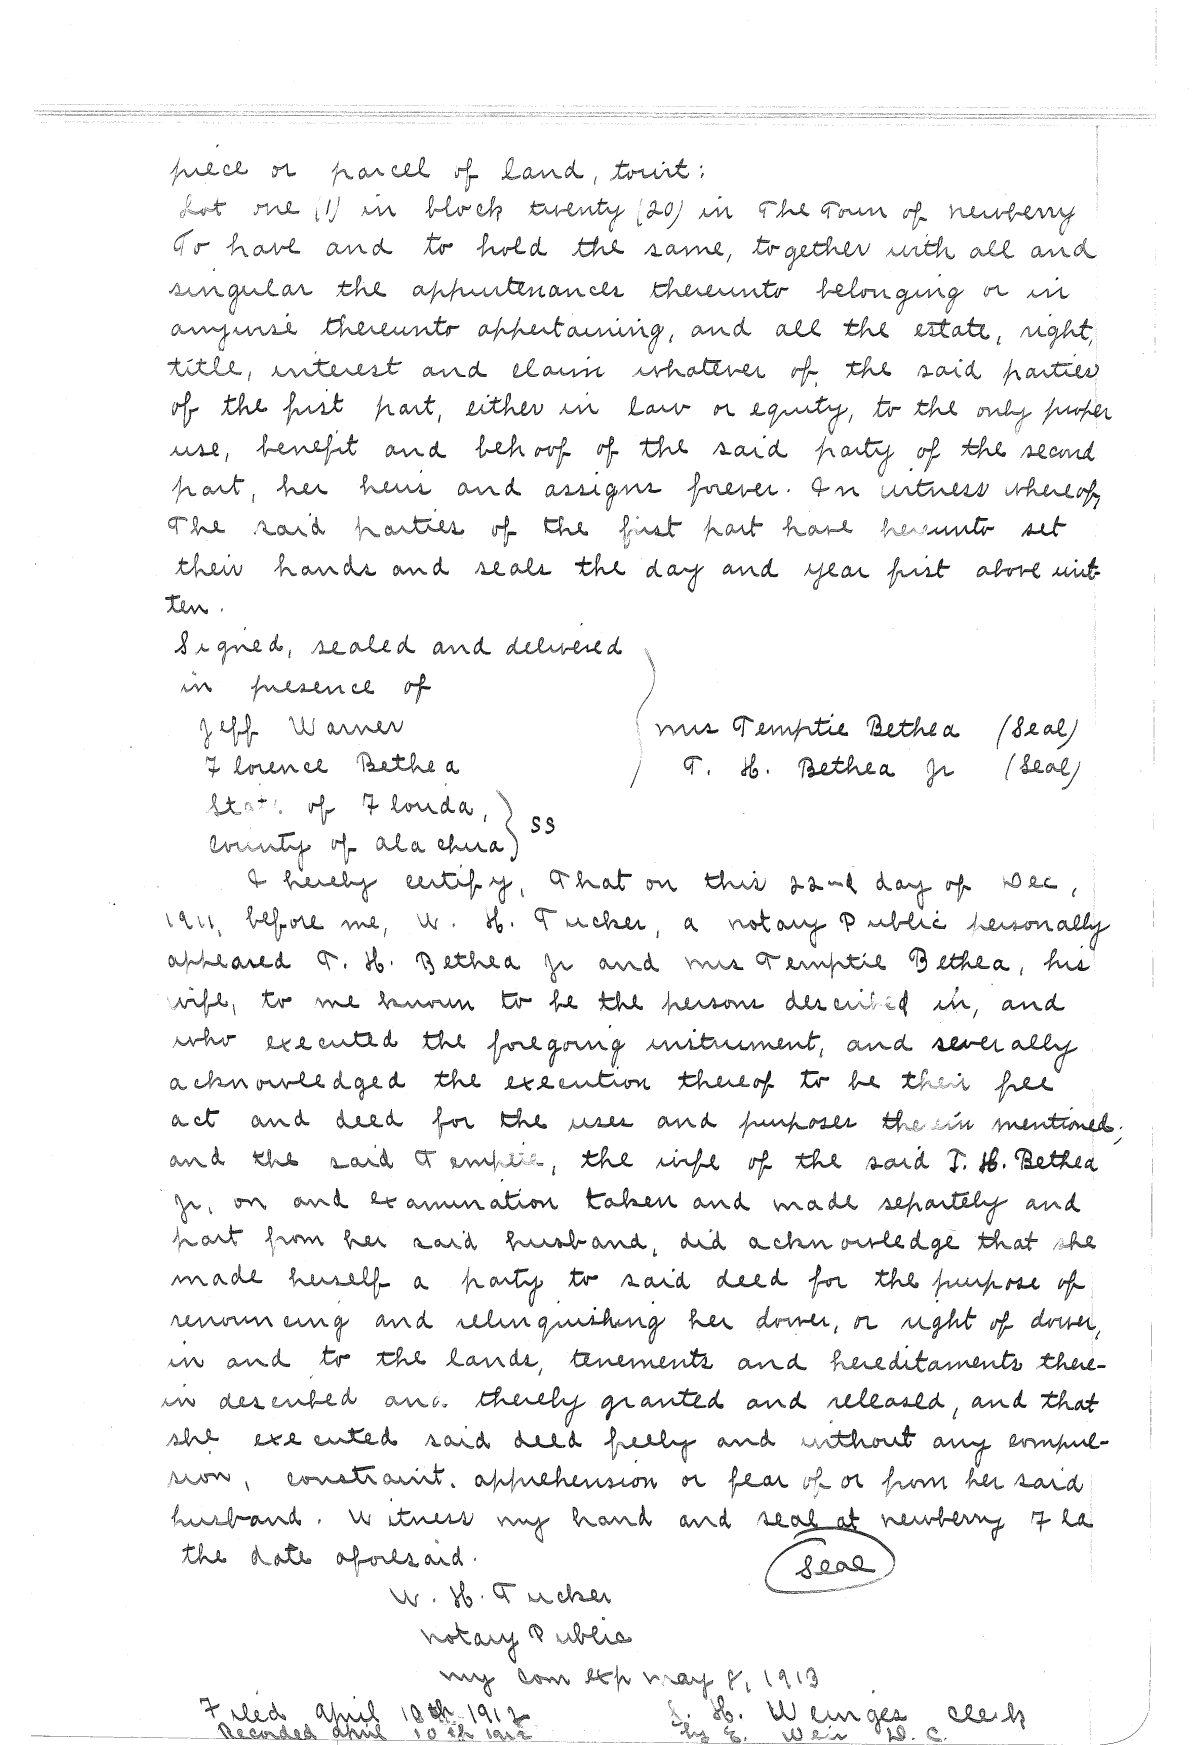 piece or parcel of land, towit:
Lot one (1) in block twenty (20) in The Town of Newberry
To have and to hold the same, together with all and
singular the appurtenances thereunto belonging or in
anywise thereunto appertaining, and all the estate, right,
title, interest and claim whatever of the said parties
of the first part, either in law or equity, to the only proper
use, benefit and behoof of the said party of the second
part, her heirs and assigns forever. In witness whereof,
The said parties of the first part have hereunto set
their hands and seals the day and year first above writ-
ten.
Signed, sealed and delivered
in presence of
Jeff Warner Mrs Temptie Bethea (Seal)
Florence Bethea T. H. Bethea Jr (Seal)
State of Florida,
County of Alachua SS
I hereby certify, That on this 22nd day of Dec,
1911, before me, W. H. Tucker, a Notary Public personally
appeared T. H. Bethea Jr and Mrs Temptie Bethea, his
wife, to me known to be the persons described in, and
who executed the foregoing instrument, and severally
acknowledged the execution thereof to be their free
act and deed for the uses and purposes therein mentioned;
and the said Temptie, the wife of the said T. H. Bethea
Jr, on and examination taken and made separtely and
part from her said husband, did acknowledge that she
made herself a party to said deed for the purpose of
renouncing and relinquishing her dower, or right of dower,
in and to the lands, tenements and hereditaments there-
in described and thereby granted and released, and that
she executed said deed freely and without any compul-
sion, constraint, apprehension or fear of or from her said
husband. Witness my hand and seal at Newberry Fla
the date aforesaid. Seal
W. H. Tucker
Notary Public
My com exp May 8, 1913
Filed April 10th 1912 H. Wienges Clerk
Recorded April 10th 1912 by E. Weir D. C.